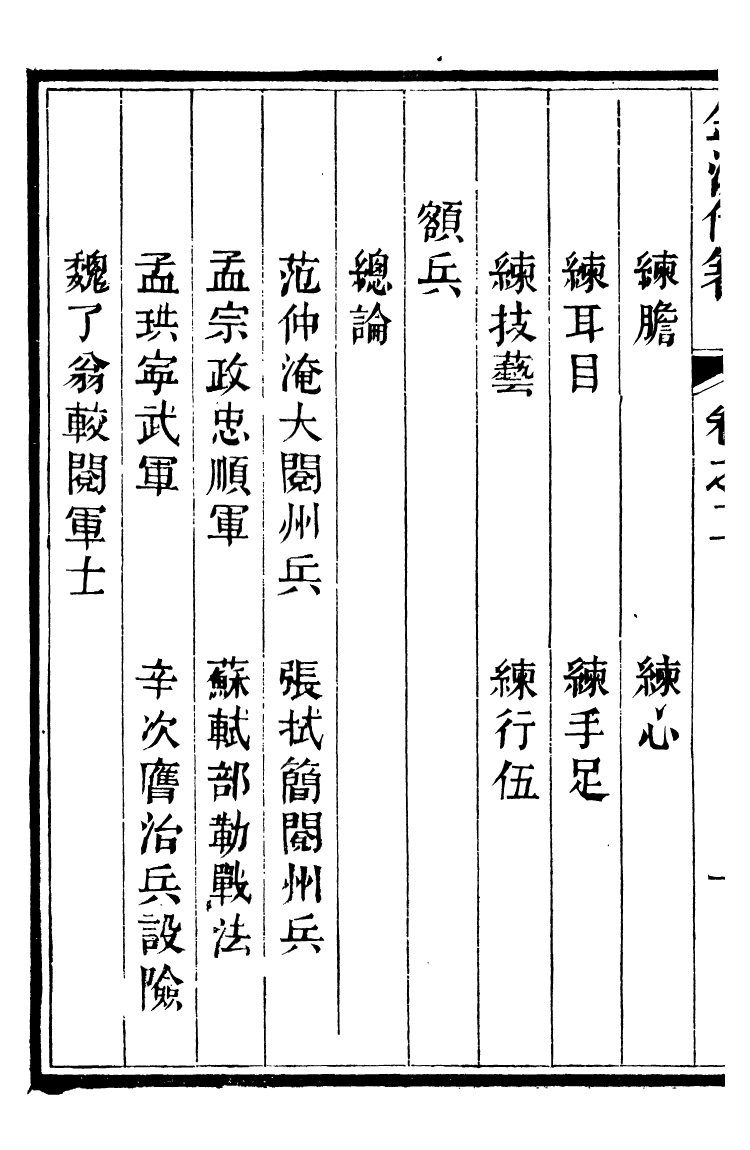 練膽　練心
練耳目　練手足
練技藝　練行伍
額兵
總論
范仲淹大閱州兵　張拭簡閱州兵
孟宗政忠順軍　蘇軾部勒戰法
孟珙寍武軍　辛次膺治兵設險
魏了翁較閱軍士